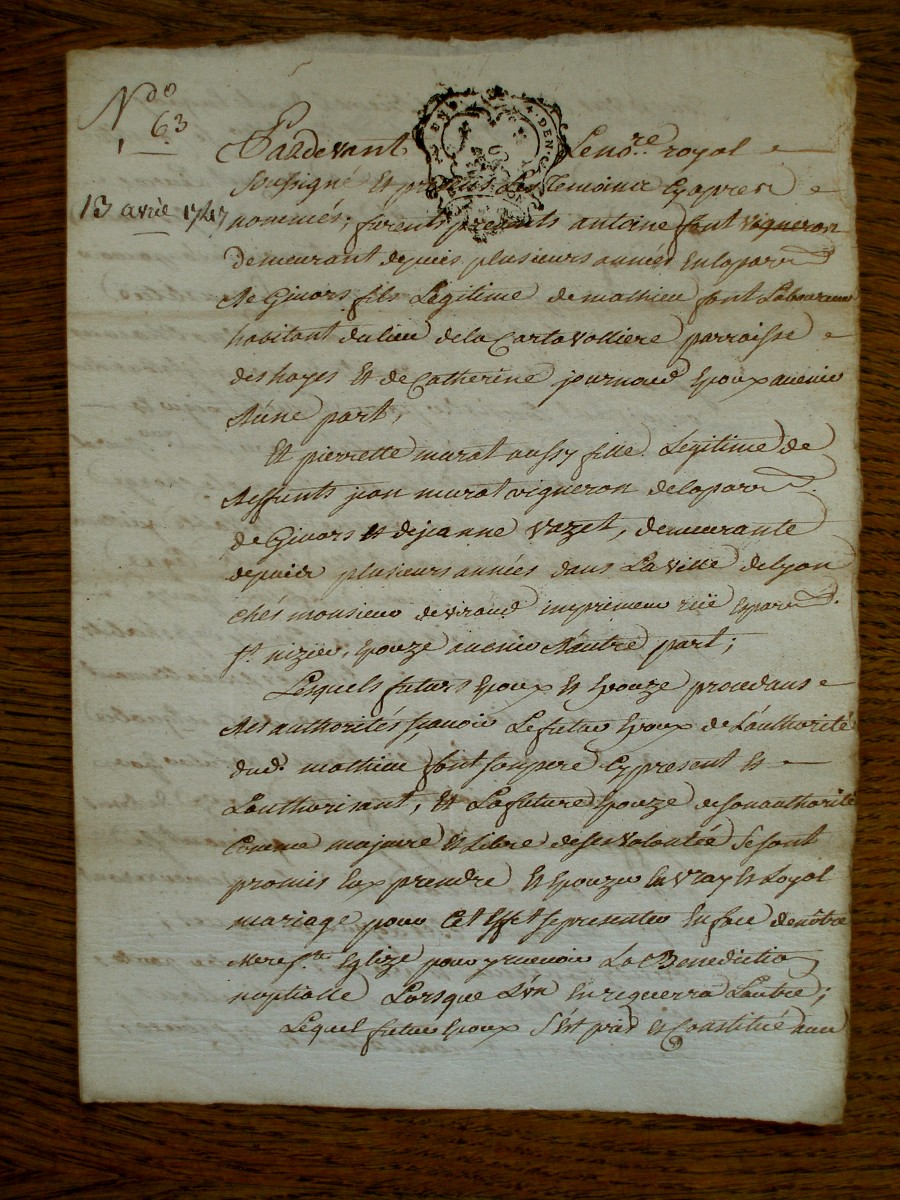 Ndo
63
13 avril 1747
Pardevant Le no.re royal
soussigné Et présents Les Temoins Cyapres
nommés, furent presents antoine font vigneron
demeurant depuis plusieurs années En la parr.
de Givors fils Legitime de mathieu font Laboureur
habitant du lieu de la Cartavolliere parroisse
des hayes Et de Catherine journoud Epoux avenir
d'une part,
Et pierrette murat aussy fille Legitime de
deffunts jean murat vigneron de la parr.
de Givors et de jeanne vazet, demeurante
depuis plusieurs années dans La ville de Lyon
chés monsieur deviroud imprimeur rüe Et parr.
st nizier, Epouze avenir d'autre part;
Lesquels futurs Epoux Et Epouze procedans
des authorités sçavoir Le futur Epoux de L'authorité
dud. mathieu font son pere Cy present Et
L'authorisant, Et La future Epouze de son authorité
Comme majeure Et Libre de ses volontés se sont
promis Eux prendre Et Epouzer En vray Et Loyal
mariage pour Cet Effet se presenter En face de nôtre
mere ste Eglize pour y recevoir La Benediction
nuptialle Lorsque L'un En requerra L'autre;
Lequel futur Epoux s'est pris et Constitué avec